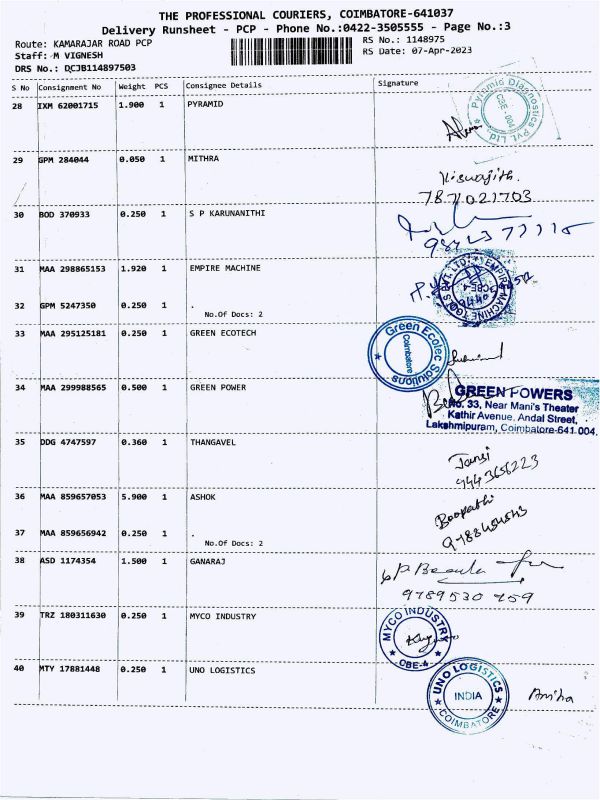 THE PROFESSIONAL COURIERS, COIMBATORE-641037
Delivery Runsheet - PCP - Phone No.:0422-3505555 - Page No.:3
Route: KAMARAJAR ROAD PCP
RS No.: 1148975
Staff: M VIGNESH
RS Date: 07-Apr-2023
DRS No.: DCJB114897503
S No Consignment No Weight PCS Consignee Details Signature
28 IXM 62001715 1.900 1 PYRAMID
Pyramid Diagnostics Pvt. Ltd
CBE - 004
29 GPM 284044 0.050 1 MITHRA
Viswajith.
7871021703
30 BOD 370933 0.250 1 S P KARUNANITHI
31 MAA 298865153 1.920 1 EMPIRE MACHINE
EMPIRE MACHINE TOOLS PVT. LTD.
32 GPM 5247350 0.250 1 .
No.Of Docs: 2
33 MAA 295125181 0.250 1 GREEN ECOTECH
Green Ecotec Solutions
Coimbatore
34 MAA 299988565 0.500 1 GREEN POWER
GREEN POWERS
No. 33, Near Mani's Theater
Kathir Avenue, Andal Street,
Lakshmipuram, Coimbatore-641 004.
35 DDG 4747597 0.360 1 THANGAVEL
Jansi
9443656223
36 MAA 859657053 5.900 1 ASHOK
Boopathi
37 MAA 859656942 0.250 1 .
No.Of Docs: 2
38 ASD 1174354 1.500 1 GANARAJ
9789530 759
39 TRZ 180311630 0.250 1 MYCO INDUSTRY
MYCO INDUSTRY
CBE-4
40 MTY 17881448 0.250 1 UNO LOGISTICS
UNO LOGISTICS
INDIA
COIMBATORE
Anitha